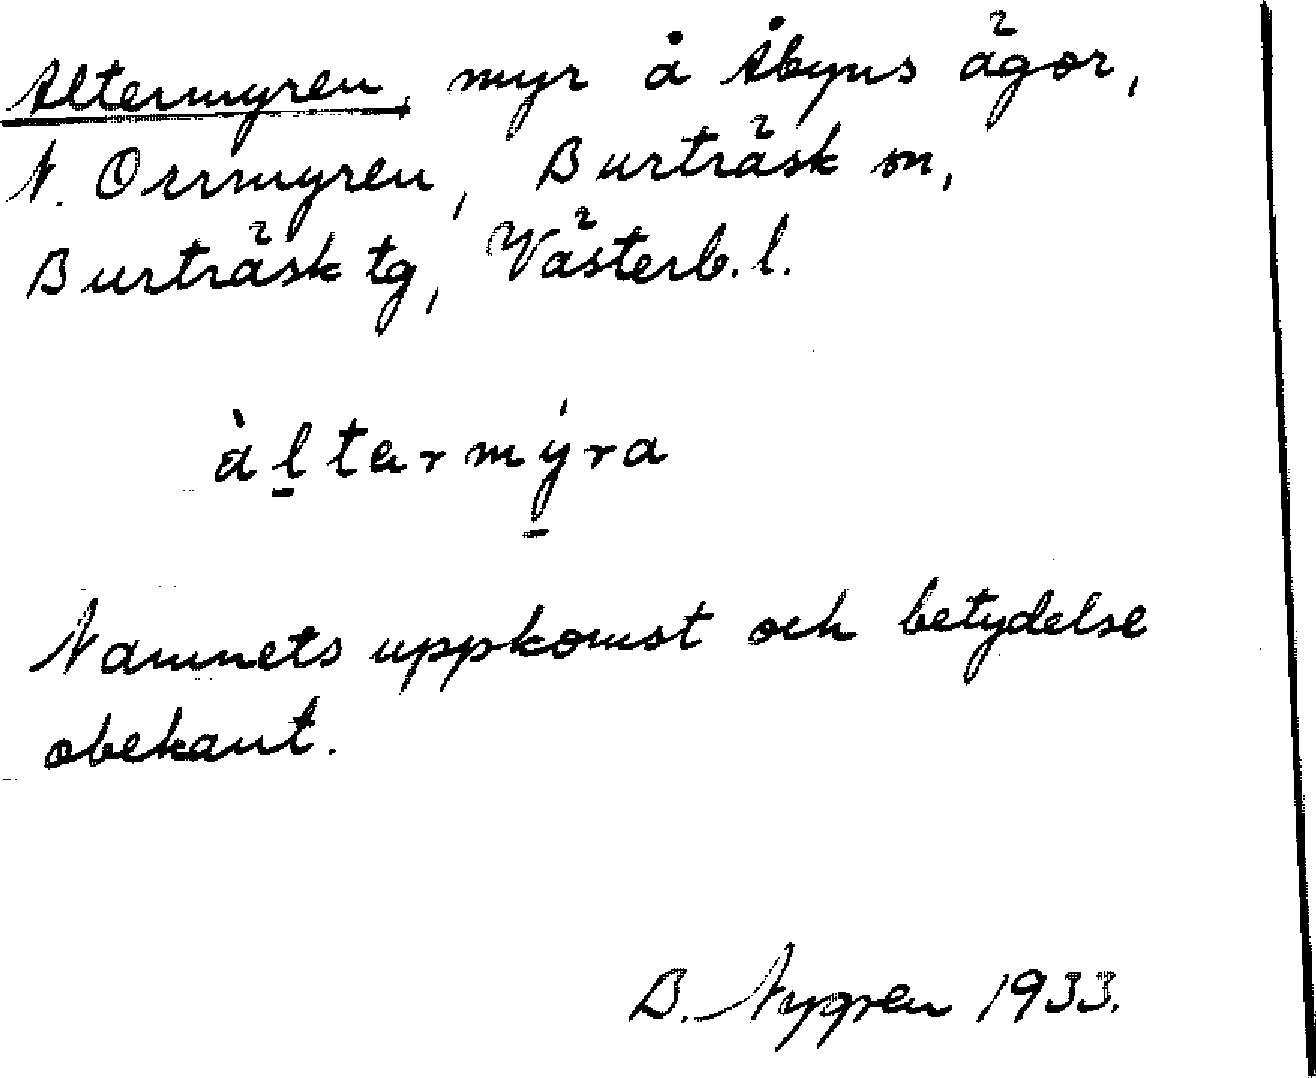 Altermyren, myr å Åbyns ägor,
N. Orrmyren, Burträsk sn,
Burträsk tg, Västerb. l.
àltarmýra
Namnets uppkomst och betydelse
obekant.
B. Nygren 1933.